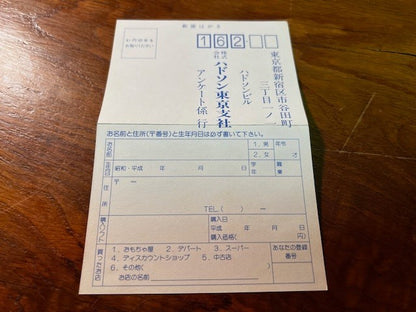 郵便はがき
お手数ですが
お貼りください
162-
東京都新宿区市谷田町
三丁目一ノ一
ハドソンビル
株式会社 ハドソン東京支社
アンケート係 行
お名前と住所(〒番号)と生年月日は必ず書いて下さい。
お名前
1. 男
2. 女
年令
才
生年月日
昭和・平成 年 月 日
学年
職業
住所
〒 ー
TEL ( ) ー
購入ソフト
購入日
平成 年 月 日
購入価格( 円)
買ったお店
1. おもちゃ屋 2. デパート 3. スーパー
4. ディスカウントショップ 5. 中古店
6. その他(
お店の名前
あなたの登録
番号